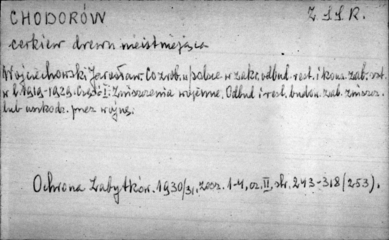 CHODORÓW Z.S.S.R.
cerkiew drewn. nieistniejąca
Wojciechowski Jarosław. Co zrob. w Polsce w zakr. odbud. rest. i kons. zab. szt.
w l. 1919-1929. Część I: Zniszczenia wojenne. Odbud. i rest. budow. zab. zniszcz.
lub uszkodz. przez wojnę.
Ochrona Zabytków. 1930/31, zesz. 1-4, cz. II, str. 243-318 (253).